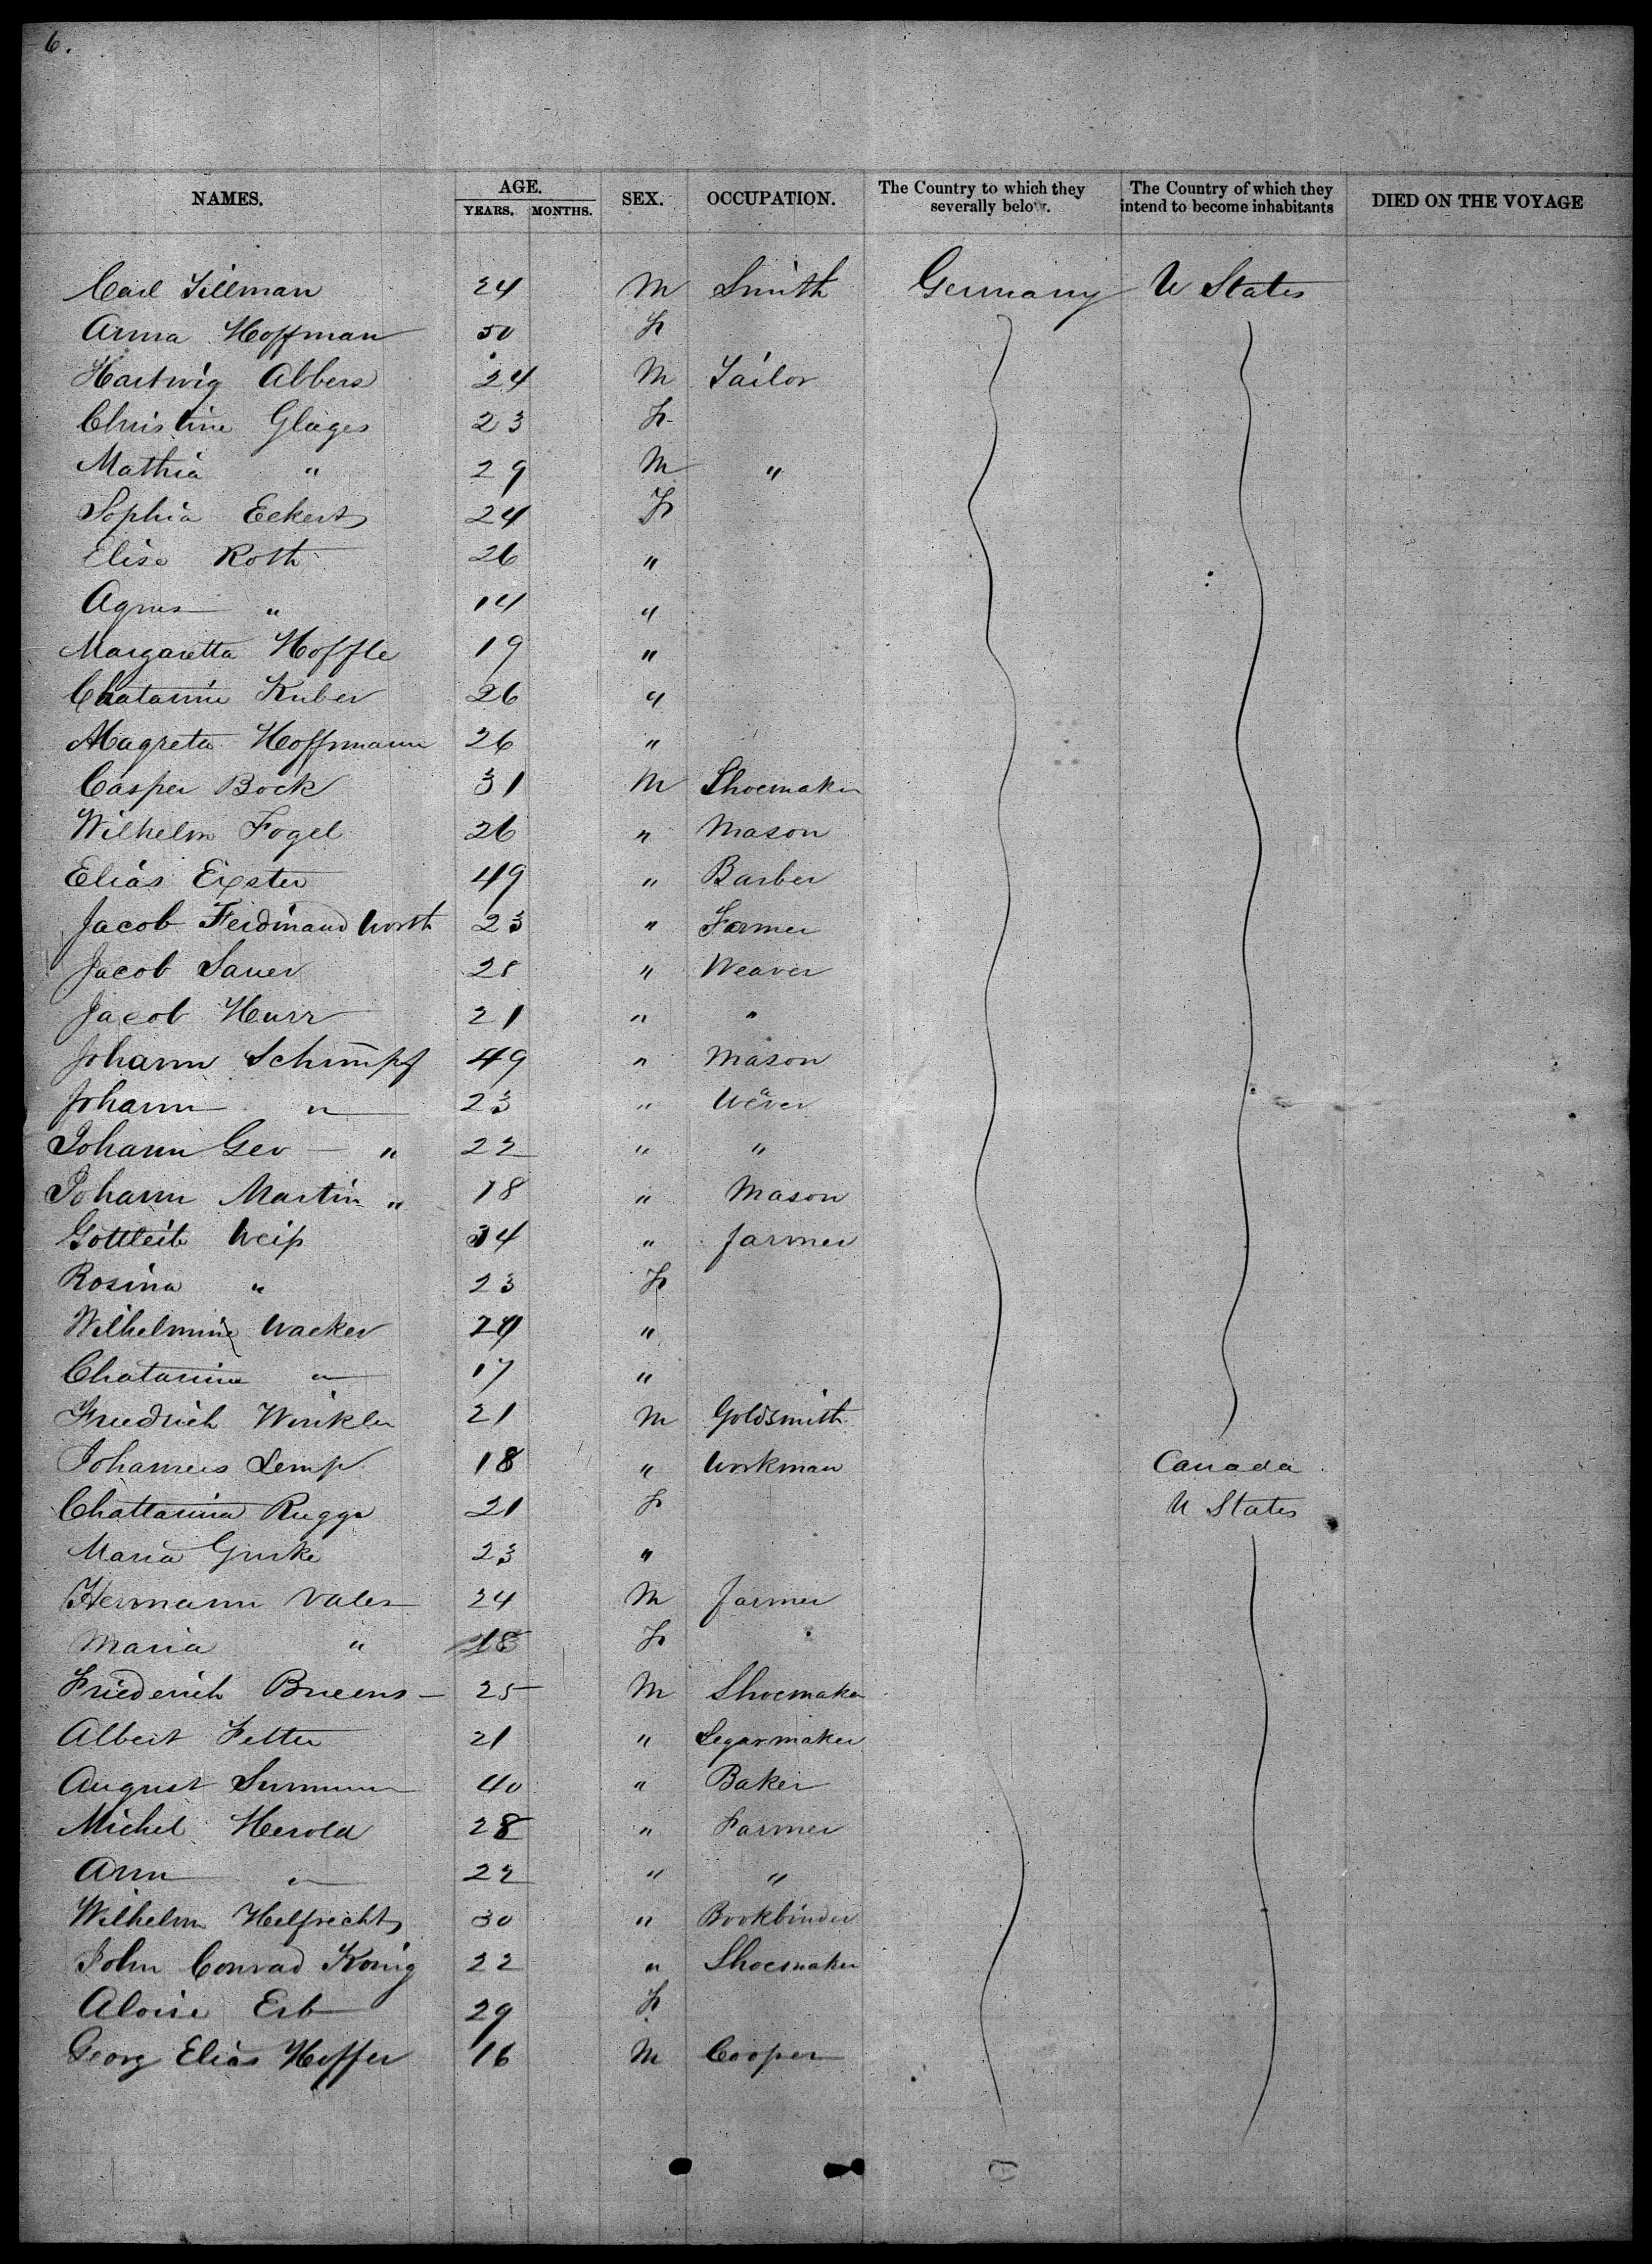 6.
NAMES. AGE. SEX. OCCUPATION. The Country to which they severally belo. The Country of which they intend to become inhabitants DIED ON THE VOYAGE
YEARS. MONTHS.
Carl Tillman 24 M Smith Germany U States
Anna Hoffman 50 F
Hartwig Abbers 24 M Tailor
Christine Glages 23 F
Mathia " 29 M "
Sophia Eckert 24 F
Elise Roth 26 "
Agnes " 14 "
Margaretta Hoffle 19 "
Chatarine Kuber 26 "
Magreta Hoffmann 26 "
Casper Bock 31 M Shoemaker
Wilhelm Fogel 26 " Mason
Elias Eixster 49 " Barber
Jacob Ferdinand Worth 23 " Farmer
Jacob Sauer 28 " Weaver
Jacob Hurr 21 " "
Johann Schimpf 49 " Mason
Johann " 23 " Wever
Johann Geo " 22 " "
Johann Martin " 18 " Mason
Gottleib Weiss 34 " farmer
Rosina " 23 F
Wilhelmine Wacker 24 "
Chatarina " 17 "
Friedrich Winkler 21 M Goldsmith
Johannes Lemp 18 " Workman Canada
Chattarina Rugga 21 F U States
Maria Guske 23 "
Hermann Vales 24 M farmer
Maria " 18 F
Friederich Bruens 25 M Shoemaker
Albert Fetter 21 " Segarmaker
August 40 " Baker
Michel Herold 28 " Farmer
Ann " 22 " "
Wilhelm Helfrecht 30 " Bookbinder
John Conrad König 22 " Shoemaker
Aloise Erb 29 F
Georg Elias Hoffer 16 M Cooper